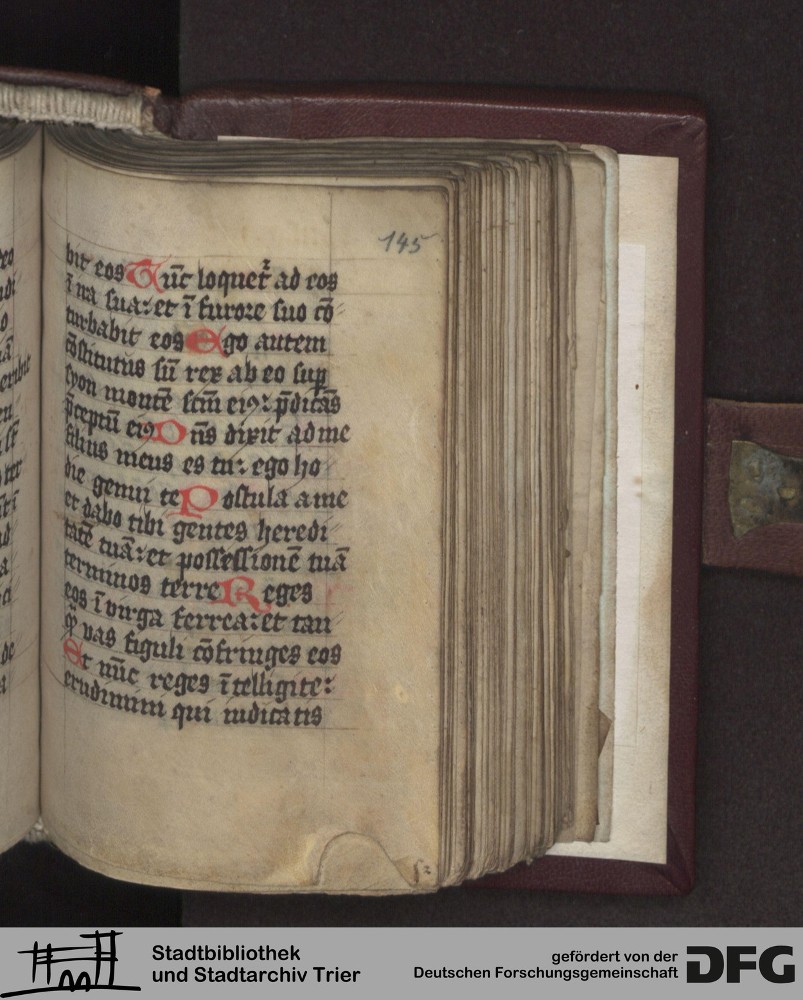 145
bit eos Tūc loquet᷑ ad eos
ī ira sua: et ī furore suo cō
turbabit eos Ego autem
cōstitutus sū rex ab eo sup̱
syon montē scm̄ eiꝰ: p̄dicās
p̄ceptū eiꝰ Dn̄s dixit ad me
filius meus es tu: ego ho
die genui te Postula a me
et dabo tibi gentes heredi
tatē tuā: et possessionē tuā
terminos terre Reges
eos ī virga ferrea: et tan
qͣ vas figuli cōfringes eos
Et nūc reges ītelligite:
erudimini qui iudicatis
Stadtbibliothek
und Stadtarchiv Trier
gefördert von der
Deutschen Forschungsgemeinschaft
DFG